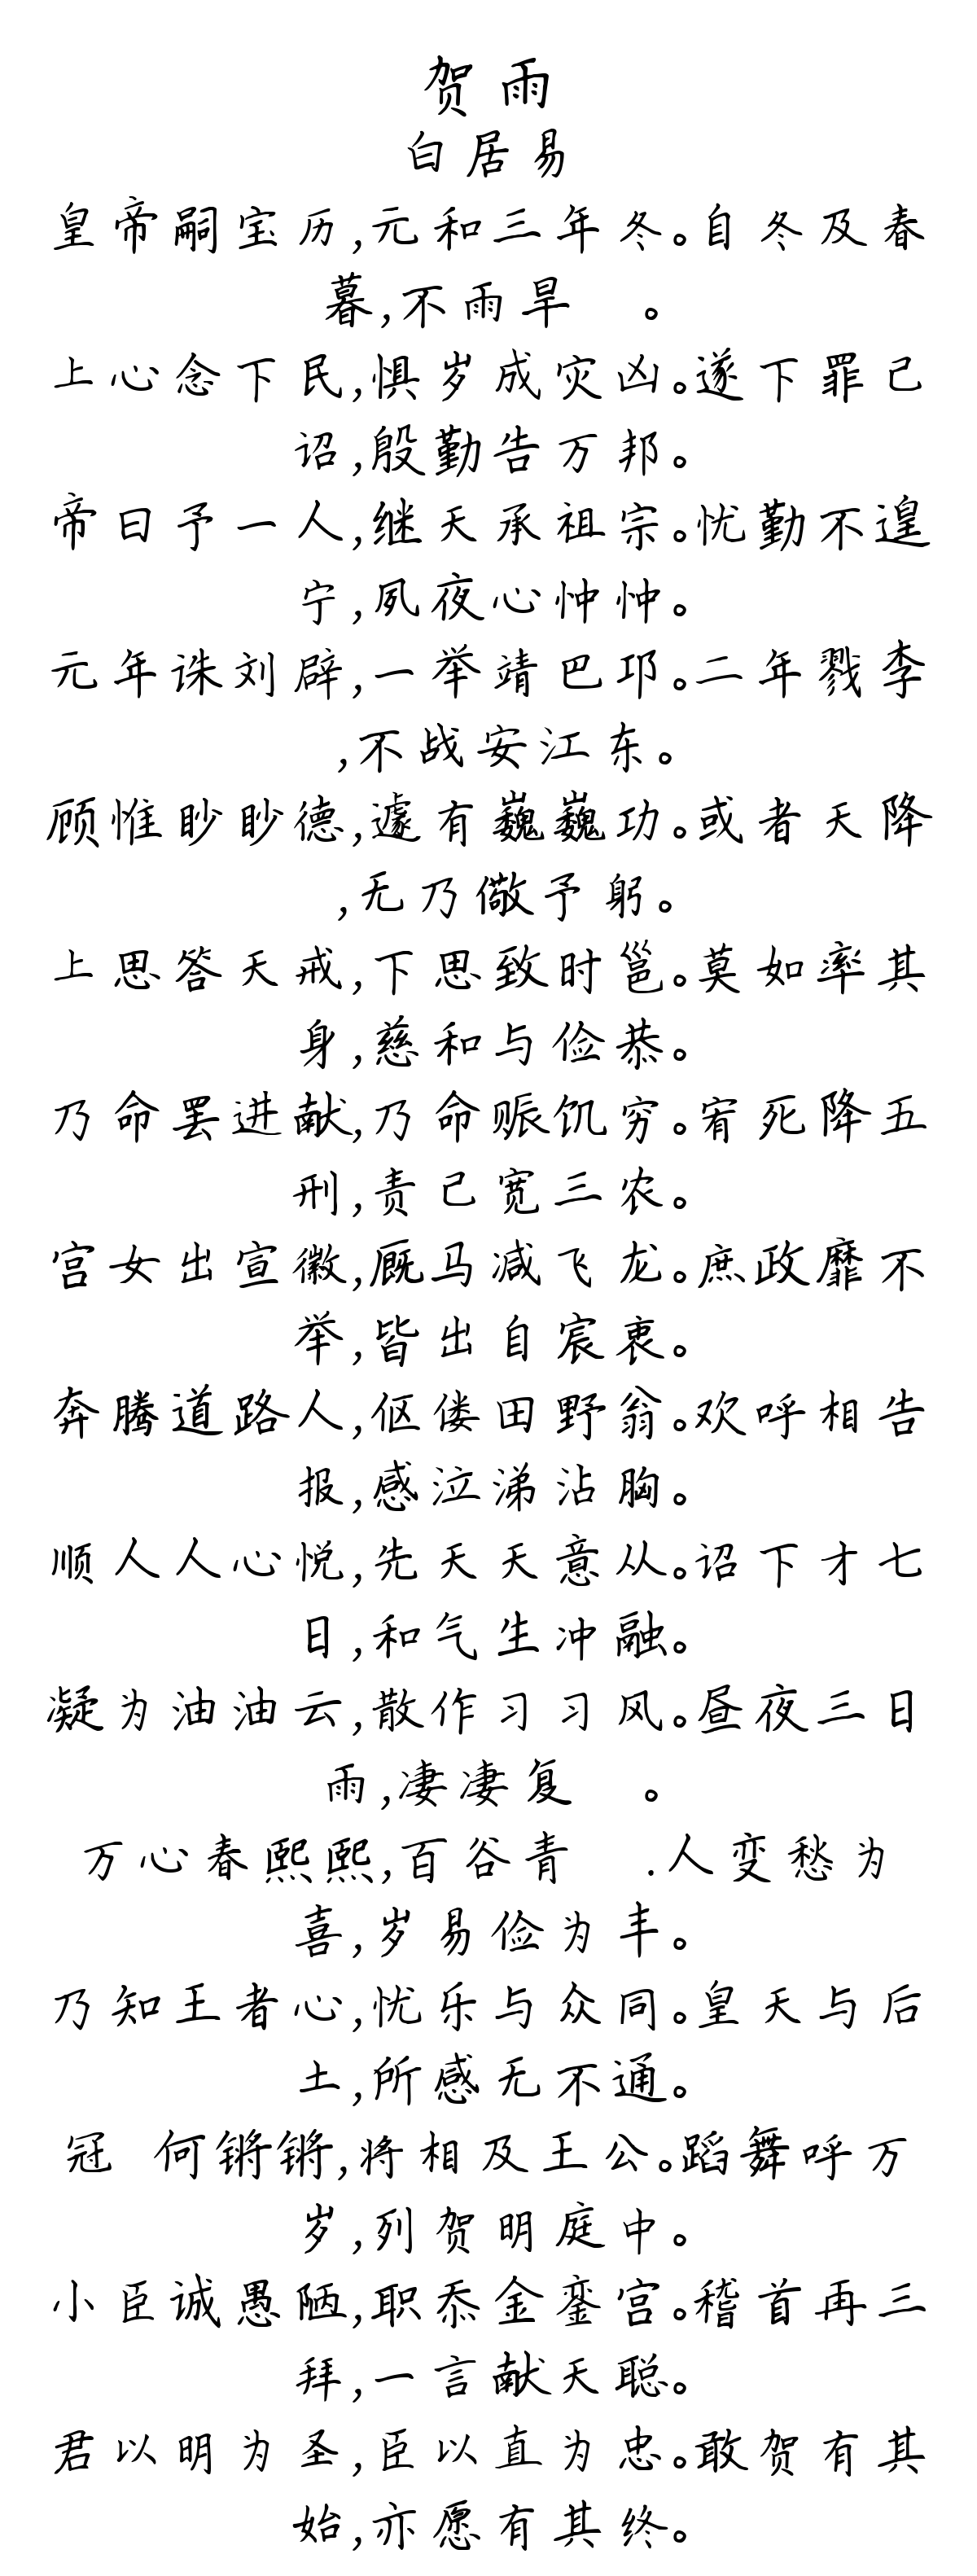 贺雨
白居易
皇帝嗣宝历,元和三年冬。自冬及春
暮,不雨旱 。
上心念下民,惧岁成灾凶。遂下罪己
诏,殷勤告万邦。
帝曰予一人,继天承祖宗。忧勤不遑
宁,夙夜心忡忡。
元年诛刘辟,一举靖巴邛。二年戮李
,不战安江东。
顾惟眇眇德,遽有巍巍功。或者天降
,无乃儆予躬。
上思答天戒,下思致时邕。莫如率其
身,慈和与俭恭。
乃命罢进献,乃命赈饥穷。宥死降五
刑,责己宽三农。
宫女出宣徽,厩马减飞龙。庶政靡不
举,皆出自宸衷。
奔腾道路人,伛偻田野翁。欢呼相告
报,感泣涕沾胸。
顺人人心悦,先天天意从。诏下才七
日,和气生冲融。
凝为油油云,散作习习风。昼夜三日
雨,凄凄复 。
万心春熙熙,百谷青 .人变愁为
喜,岁易俭为丰。
乃知王者心,忧乐与众同。皇天与后
土,所感无不通。
冠 何锵锵,将相及王公。蹈舞呼万
岁,列贺明庭中。
小臣诚愚陋,职忝金銮宫。稽首再三
拜,一言献天聪。
君以明为圣,臣以直为忠。敢贺有其
始,亦愿有其终。